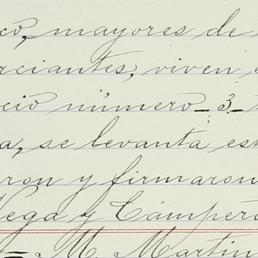 co, mayores de
rciantes, viven e
cio número 3
a, se levanta est
ron y firmaron
Vega y Campero
M. Martin